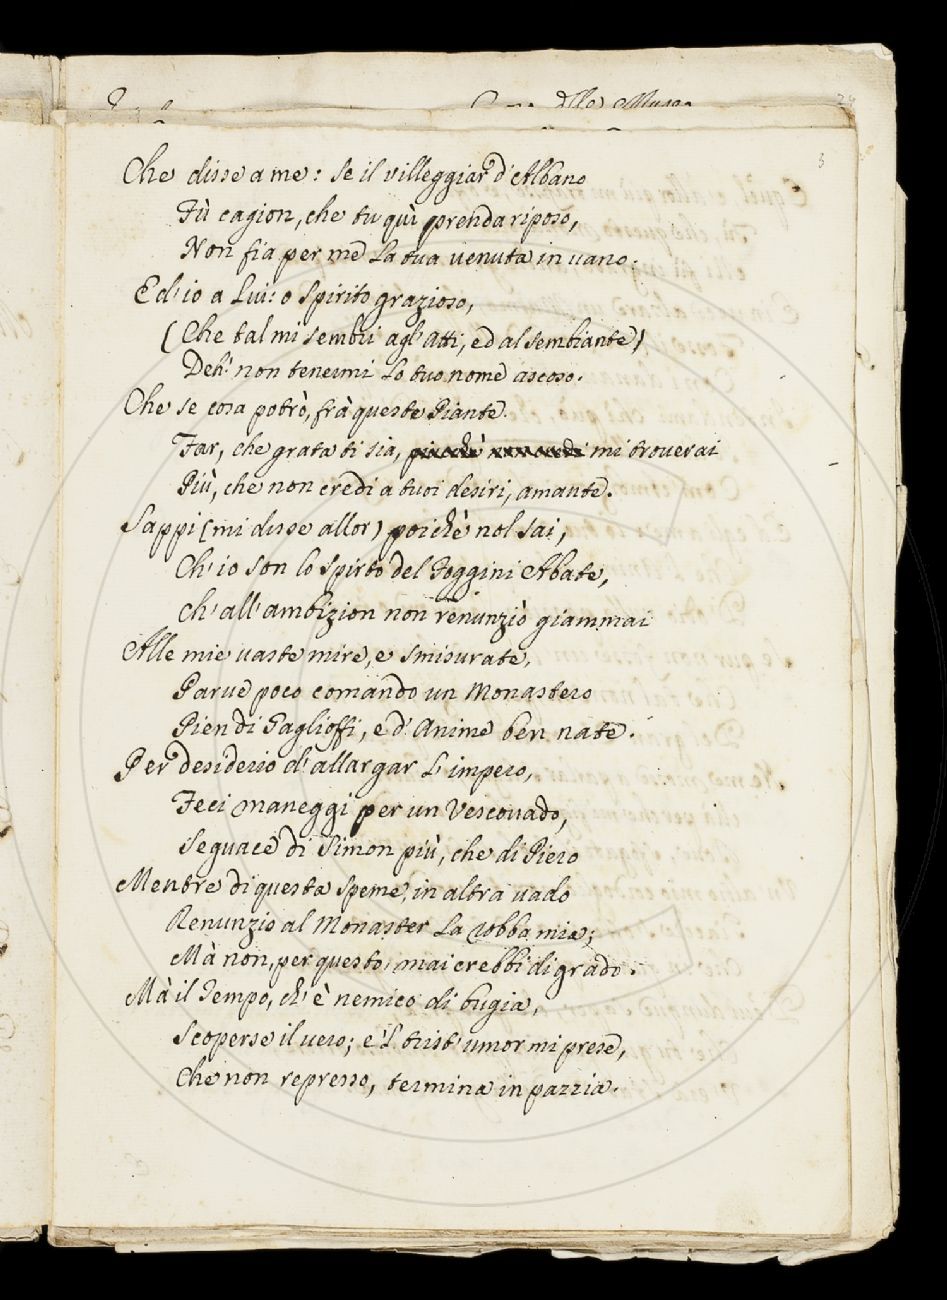 Che disse a me: Se il villeggiar d'Albano
Fù cagion, che tu quì prenda riposo,
Non fia per me La tua venuta in vano.
Ed' io a Lui: o Spirito grazioso,
(Che tal mi sembri agl' atti, ed al sembiante)
Deh! non tenermi Lo tuo nome ascoso.
Che se cosa potrò, frà queste Piante.
Far, che grata ti sia, mi troverai
Più, che non credi a tuoi desiri, amante.
Sappi (mi disse allor) poichè nol sai,
Ch' io son lo spirto del Foggini Abate,
ch' all' ambizion non renunziò giammai
Alle mie vaste mire, e smisurate,
Parve poco comando un Monastero
Pien di Paglioffi, e d' Anime ben nate.
Per desiderio d' allargar L' impero,
Feci maneggi per un Vescovado,
Seguace di Simon più, che di Piero
Mentre di questa speme, in altra vado
Renunzio al Monaster La robba mia;
Mà non, per questo, mai crebbi di grado.
Mà il Tempo, ch' è nemico di bugia,
Scoperse il vero; e 'l trist' umor mi prese,
Che non represso, termina in pazzia.